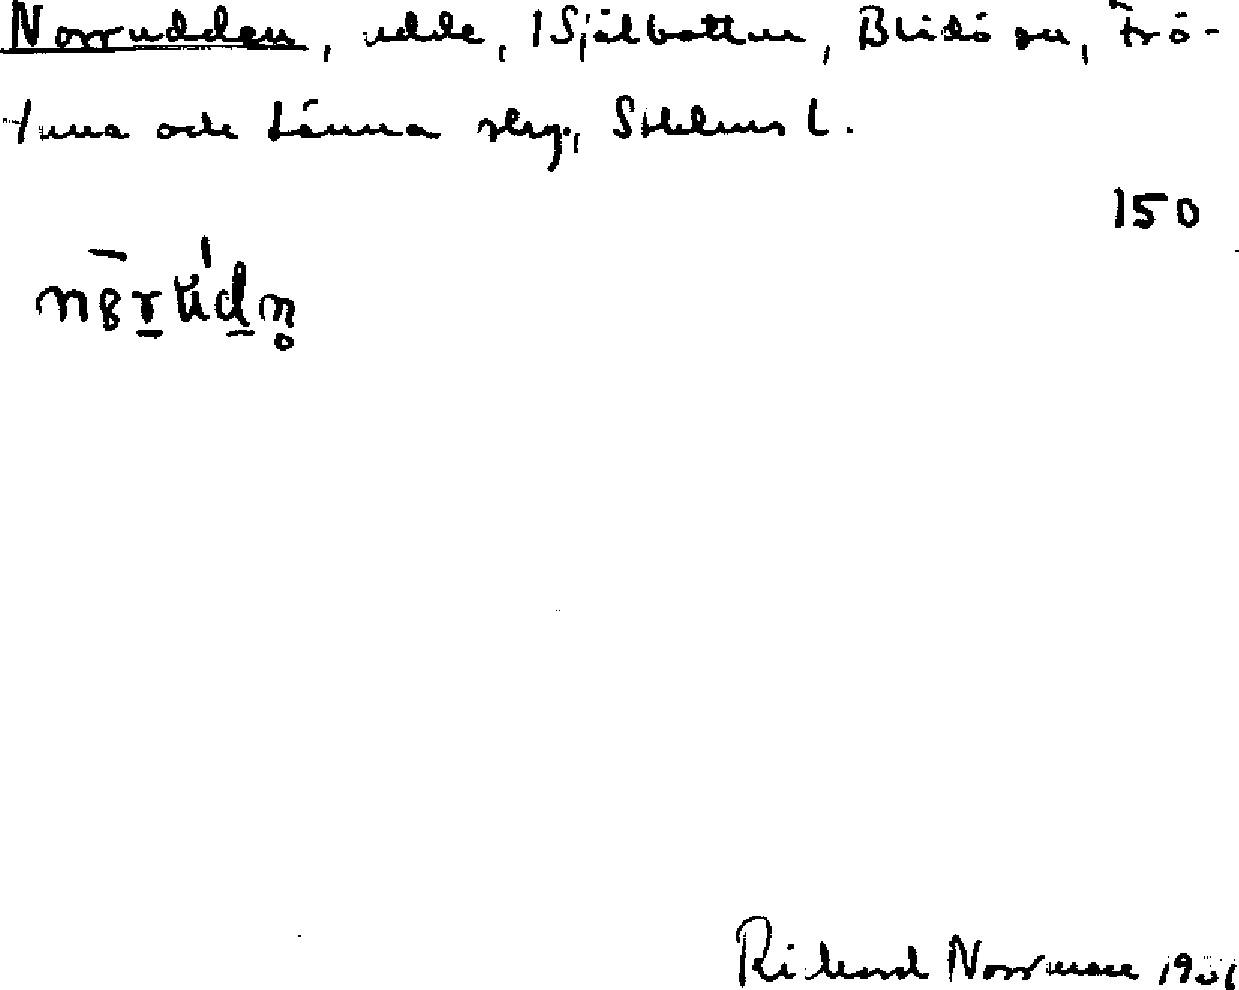 Norrudden, udde, 1 Själbottna, Blidö sn, Frö-
tuna och Länna skg., Sthlms l.
150
Rickard Norrman